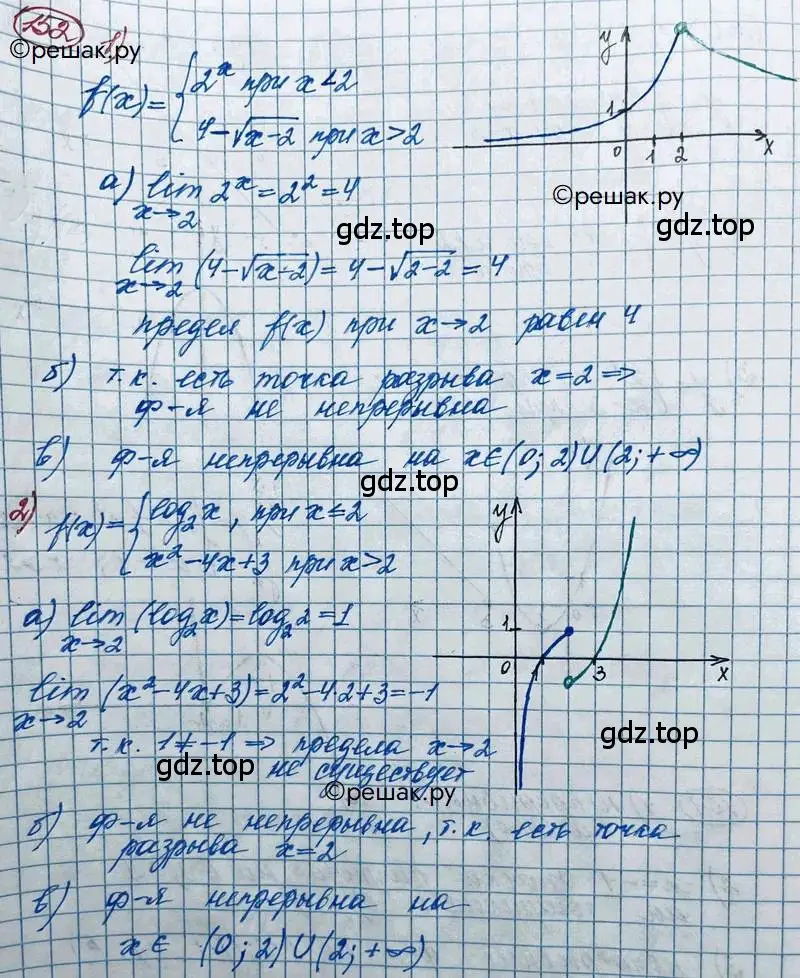 152
©решак.ру
1)
f(x)= { 2ˣ при x<2
4-√x-2 при x>2
y
1
0 1 2 x
©решак.ру
а) lim 2ˣ=2²=4
x→2
gdz.top gdz.top
lim (4-√x-2)=4-√2-2=4
x→2
предел f(x) при x→2 равен 4
б) т.к. есть точка разрыва x=2 =>
ф-я не непрерывна
в) ф-я непрерывна на x∈(0;2)U(2;+∞)
gdz.top gdz.top
2) f(x)= { log₂x, при x≤2
x²-4x+3 при x>2
y
1
0 1 3 x
а) lim (log₂x)=log₂2=1
x→2
lim (x²-4x+3)=2²-4·2+3=-1
x→2
т.к. 1≠-1 => предела x→2
не существует
gdz.top gdz.top
©решак.ру
б) ф-я не непрерывна, т.к. есть точка
разрыва x=2
в) ф-я непрерывна на
x∈ (0;2)U(2;+∞)